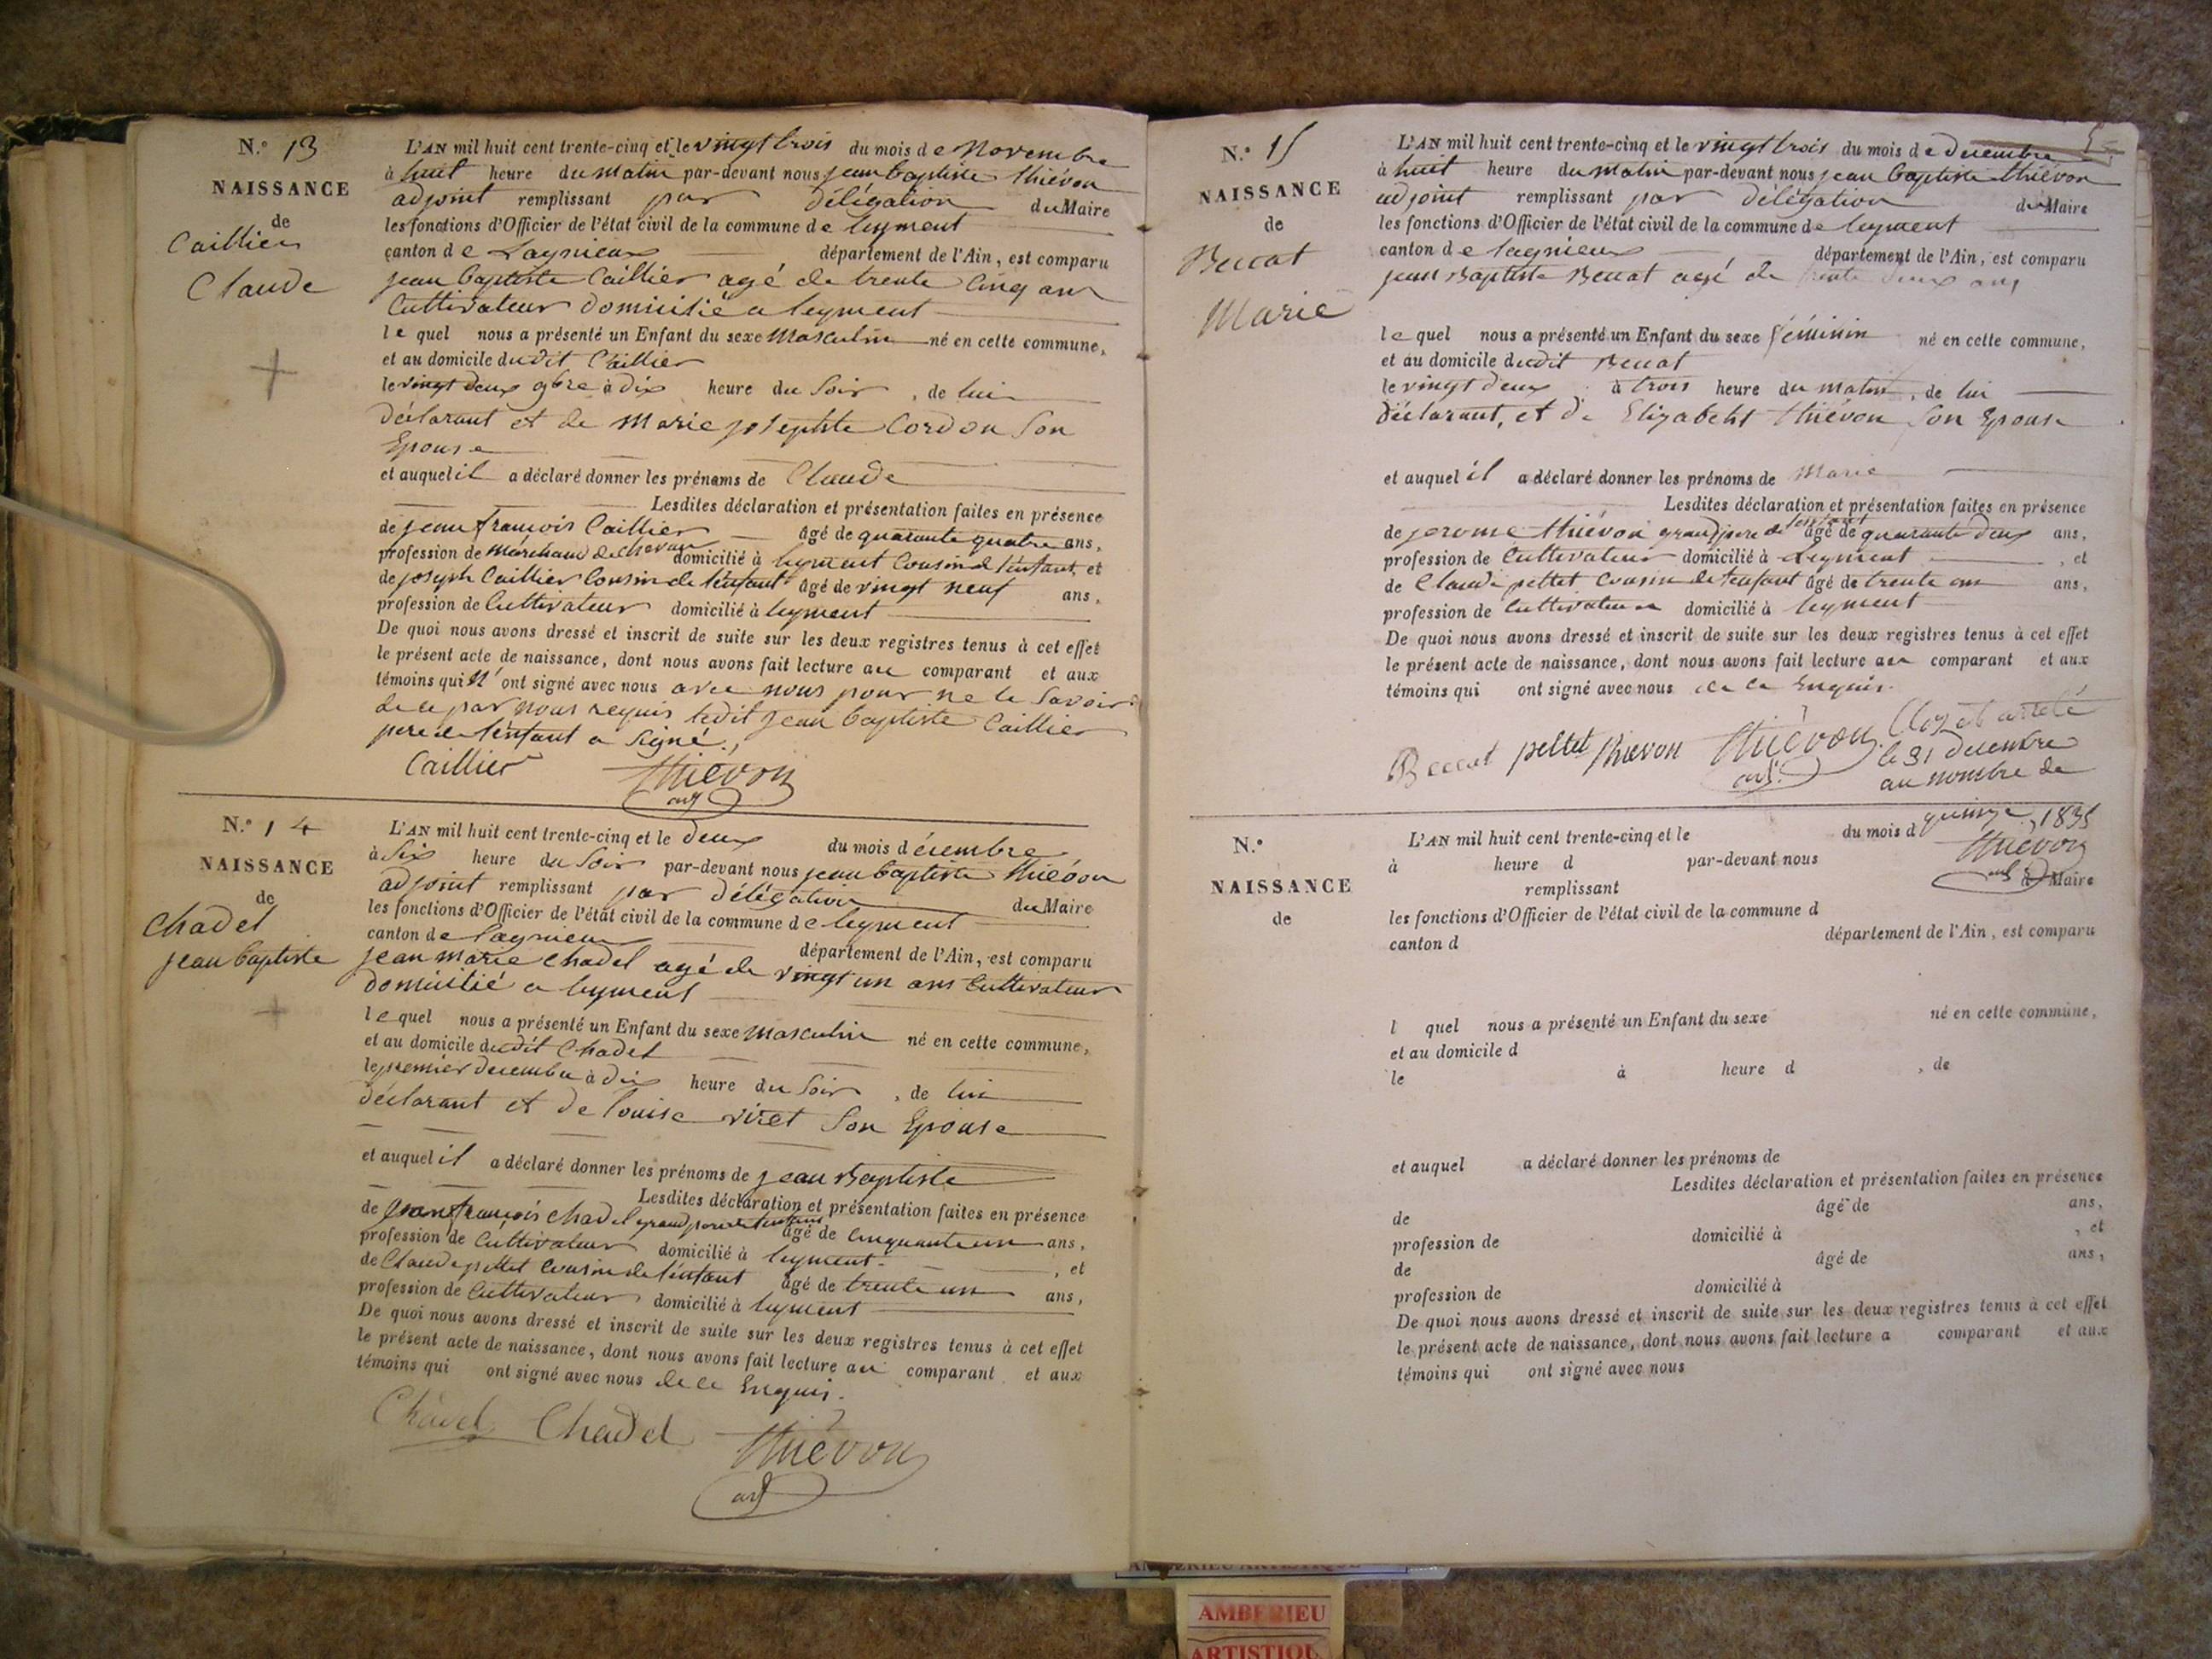 N.° 13
NAISSANCE
de
Caillier
Claude
L'AN mil huit cent trente-cinq et le vingt trois du mois de Novembre
à huit heure du matin par-devant nous jean baptiste thiévon
adjoint remplissant par délégation du Maire
les fonctions d'Officier de l'état civil de la commune de leyment
canton de Lagnieux département de l'Ain, est comparu
jean baptiste Caillier agé de trente Cinq ans
Cultivateur domicilié a leyment
le quel nous a présenté un Enfant du sexe Masculin né en cette commune,
et au domicile dudit Caillier
le vingt deux 9bre à dix heure du Soir, de lui
déclarant et de Marie josephte Cordon Son
Epouse
et auquel il a déclaré donner les prénoms de Claude
Lesdites déclaration et présentation faites en présence
de jean françois Caillier âgé de quarante quatre ans,
profession de Marchand de chevaux domicilié à leyment Cousin de l'enfant, et
de joseph Caillier Cousin de l'enfant âgé de vingt neuf ans,
profession de Cultivateur domicilié à leyment
De quoi nous avons dressé et inscrit de suite sur les deux registres tenus à cet effet
le présent acte de naissance, dont nous avons fait lecture au comparant et aux
témoins qui n'ont signé avec nous avec nous pour ne le Savoir
de ce par nous requis ledit jean baptiste Caillier
pere de l'enfant a Signé.
Caillier thiévon
adj
N.° 14
NAISSANCE
de
Chadel
jean baptiste
L'AN mil huit cent trente-cinq et le deux du mois décembre
à Six heure du Soir par-devant nous jean baptiste thiévon
adjoint remplissant par délégation du Maire
les fonctions d'Officier de l'état civil de la commune de leyment
canton de lagnieux département de l'Ain, est comparu
jean marie chadel agé de vingt un ans Cultivateur
domicilié a leyment
le quel nous a présenté un Enfant du sexe masculin né en cette commune,
et au domicile dudit Chadel
le premier decembre à dix heure du Soir, de lui
déclarant et de louise viret Son Epouse
et auquel il a déclaré donner les prénoms de jean Baptiste
Lesdites déclaration et présentation faites en présence
de jean françois chadel grand pere de l'enfant âgé de Cinquante un ans,
profession de Cultivateur domicilié à leyment, et
de Claude pettet Cousin de l'enfant âgé de trente un ans,
profession de Cultivateur domicilié à leyment
De quoi nous avons dressé et inscrit de suite sur les deux registres tenus à cet effet
le présent acte de naissance, dont nous avons fait lecture au comparant et aux
témoins qui ont signé avec nous de ce Enquis.
Chadel Chadel thiévon
adj
5
N.° 15
NAISSANCE
de
Beccat
Marie
L'AN mil huit cent trente-cinq et le vingt trois du mois de decembre
à huit heure du matin par-devant nous jean baptiste thiévon
adjoint remplissant par délégation du Maire
les fonctions d'Officier de l'état civil de la commune de leyment
canton de lagnieux département de l'Ain, est comparu
jean Baptiste Beccat agé de trente deux ans
le quel nous a présenté un Enfant du sexe féminin né en cette commune,
et au domicile dudit Beccat
le vingt deux à trois heure du matin, de lui
déclarant, et de Elizabeht thiévon Son Epouse
et auquel il a déclaré donner les prénoms de Marie
Lesdites déclaration et présentation faites en présence
de jerome thiévon grand pere de l'enfant âgé de quarante deux ans,
profession de Cultivateur domicilié à Leyment, et
de Claude pettet Cousin de l'enfant âgé de trente un ans,
profession de Cultivateur domicilié à leyment
De quoi nous avons dressé et inscrit de suite sur les deux registres tenus à cet effet
le présent acte de naissance, dont nous avons fait lecture au comparant et aux
témoins qui ont signé avec nous de ce Enquis.
Beccat pettet thievon thiévon
adj.
Clos et arreté
le 31 decembre
au nombre de
quinze, 1835
thiévon
adj
N.°
NAISSANCE
de
L'AN mil huit cent trente-cinq et le du mois d
à heure d par-devant nous
remplissant d Maire
les fonctions d'Officier de l'état civil de la commune d
canton d département de l'Ain, est comparu
l quel nous a présenté un Enfant du sexe né en cette commune,
et au domicile d
le à heure d , de
et auquel a déclaré donner les prénoms de
Lesdites déclaration et présentation faites en présence
de âgé de ans,
profession de domicilié à , et
de âgé de ans,
profession de domicilié à
De quoi nous avons dressé et inscrit de suite sur les deux registres tenus à cet effet
le présent acte de naissance, dont nous avons fait lecture a comparant et aux
témoins qui ont signé avec nous
AMBERIEU ARTISTIQUE
AMBERIEU
ARTISTIQU